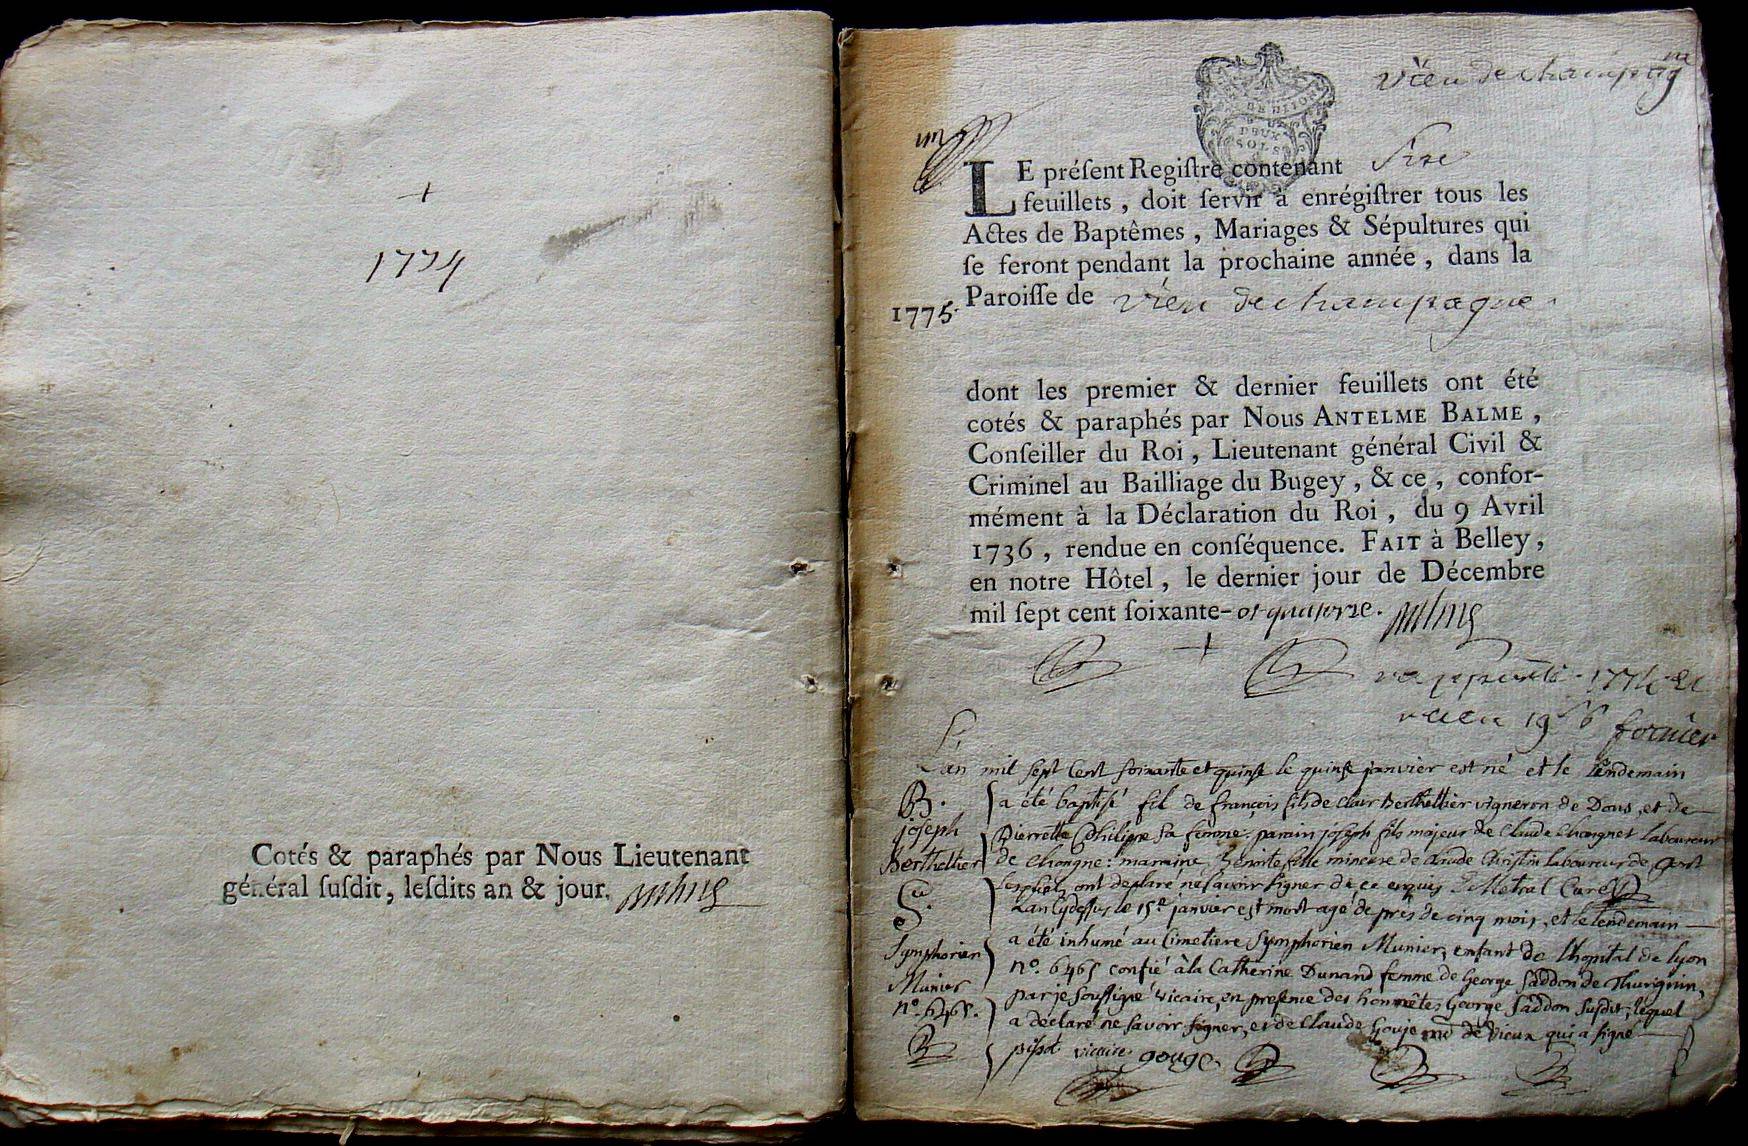 1774
Cotés & paraphés par Nous Lieutenant
général ſuſdit, leſdits an & jour.
Vieu de champag
DE DIJON
DEUX
SOLS
un
LE préſent Regiſtre contenant
feuillets, doit ſervir à enrégiſtrer tous les
Actes de Baptêmes, Mariages & Sépultures qui
ſe feront pendant la prochaine année, dans la
1775. Paroiſſe de Vieu de champagne
dont les premier & dernier feuillets ont été
cotés & paraphés par Nous ANTELME BALME,
Conſeiller du Roi, Lieutenant général Civil &
Criminel au Bailliage du Bugey, & ce, confor-
mément à la Déclaration du Roi, du 9 Avril
1736, rendue en conſéquence. FAIT à Belley,
en notre Hôtel, le dernier jour de Décembre
mil ſept cent ſoixante- et quatorze.
L'an mil sept Cent soixante et quinse le quinse janvier est né et le lendemain
B. a été baptisé fil de françois fils de Clair Berthellier vigneron de Dons, et de
joseph Pierrette Philippe sa femme. parain joseph fils majeur de Claude Chongnet laboureur
Berthellier de Chongne: maraine Benoite fille mineure de Claude Christin laboureur de
lesquels ont declaré ne savoir signer de ce enquis Metral Curé
S. L'an cy dessus le 15e janvier est mort agé de près de cinq mois, et le lendemain
Symphorien a été inhumé au Cimetiere Symphorien Munier, enfant de l'hopital de lyon
Munier no. 6465 confié à la Catherine Dunand femme de George Saddon de Thurignin,
no. 6465. par je soussigné vicaire, en presence des honnêtes George Saddon susdit, lequel
a déclaré ne savoir signer, et de Claude Gouje de Vieux qui a signé
vicaire gouge